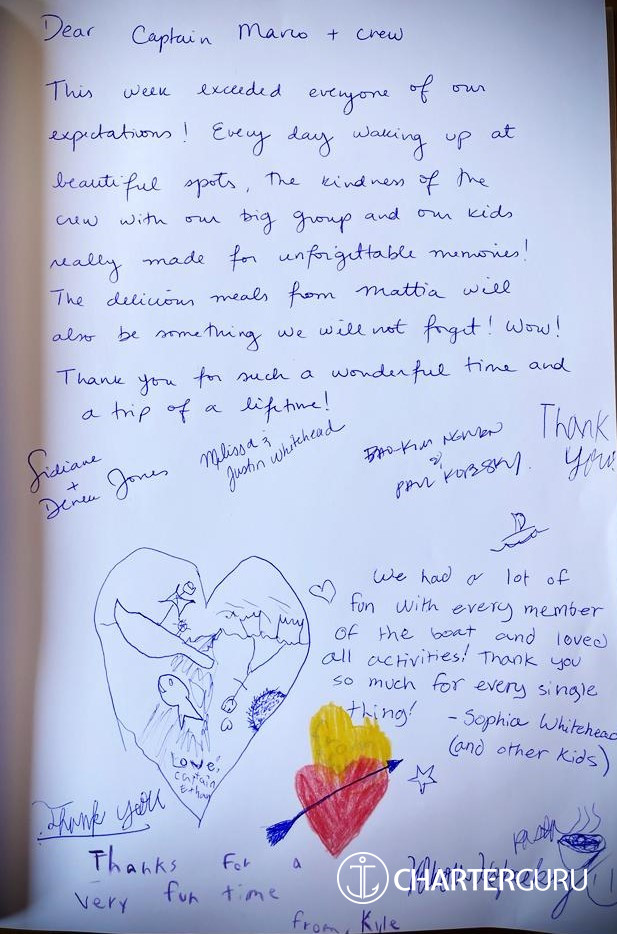 Dear Captain Marco + crew
This week exceeded everyone of our
expectations! Every day waking up at
beautiful spots, the kindness of the
crew with our big group and our kids
really made for unforgettable memories!
The delicious meals from Mattia will
also be something we will not forget! Wow!
Thank you for such a wonderful time and
a trip of a lifetime!
+
Jones
Melissa &
Justin Whitehead
BAO-KIM NGUYEN
&
PAUL
Thank
you!
We had a lot of
fun with every member
of the boat and loved
all activities! Thank you
so much for every single
thing!
- Sophia Whitehead
(and other kids)
Love,
Captain
Ethan
from
Thank you
Thanks for a
very fun time
from, Kyle
CHARTERGURU